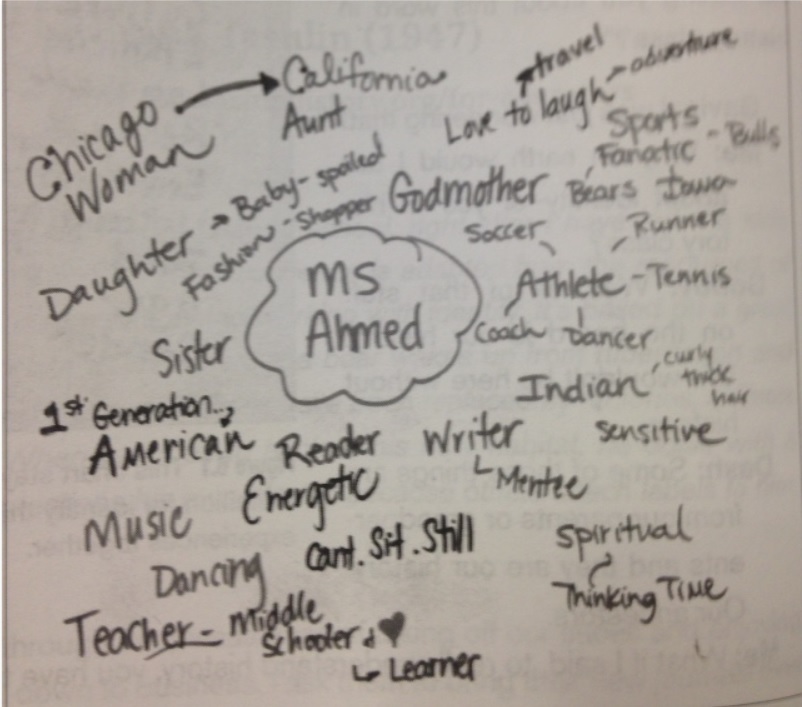 Chicago Woman → California
Aunt
Love to laugh
travel
adventure
Sports Fanatic - Bulls
Bears Iowa
Daughter → Baby - spoiled
Fashion - Shopper
Godmother
Soccer
Runner
Athlete - Tennis
Coach
Dancer
Ms Ahmed
Sister
Indian
curly
thick
hair
1st Generation...
American
Reader
Writer
Mentee
Sensitive
Energetic
Music
Cant. Sit. Still
Dancing
Spiritual
Thinking Time
Teacher - Middle
Schooler ♥
Learner